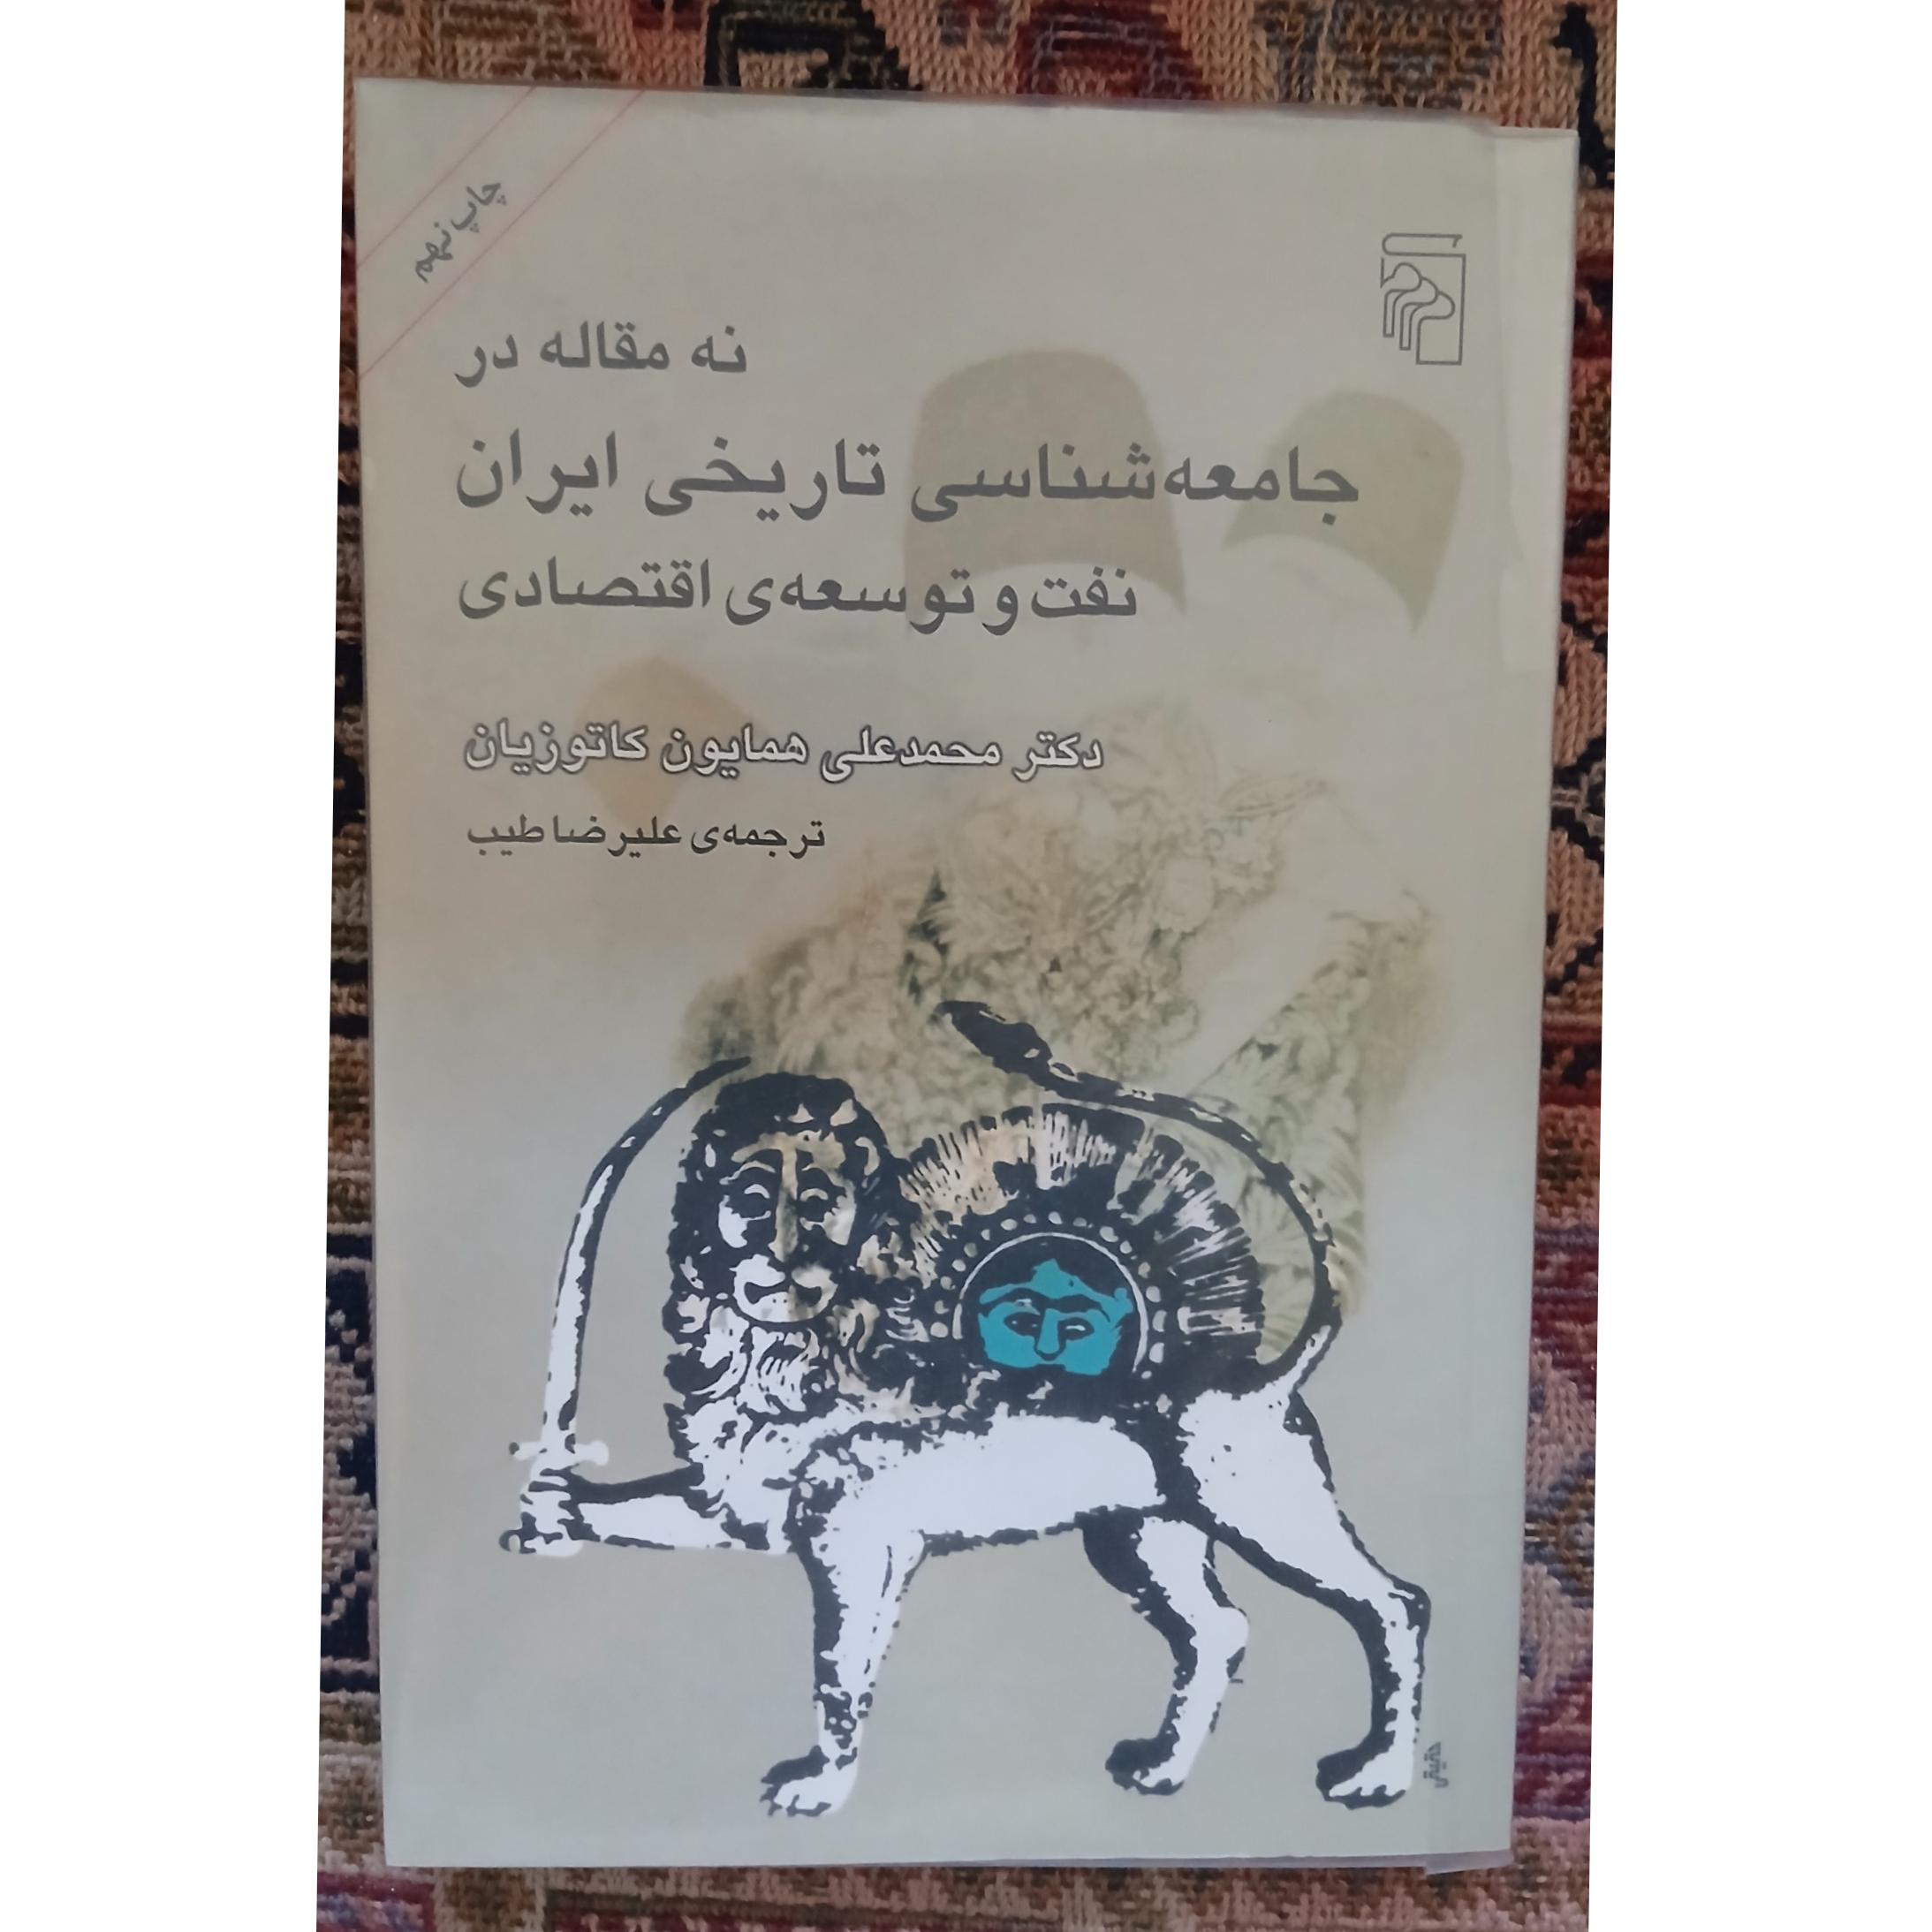 چاپ نهم
نه مقاله در
جامعه‌شناسی تاریخی ایران
نفت و توسعه‌ی اقتصادی
دکتر محمدعلی همایون کاتوزیان
ترجمه‌ی علیرضا طیب
حقیقی